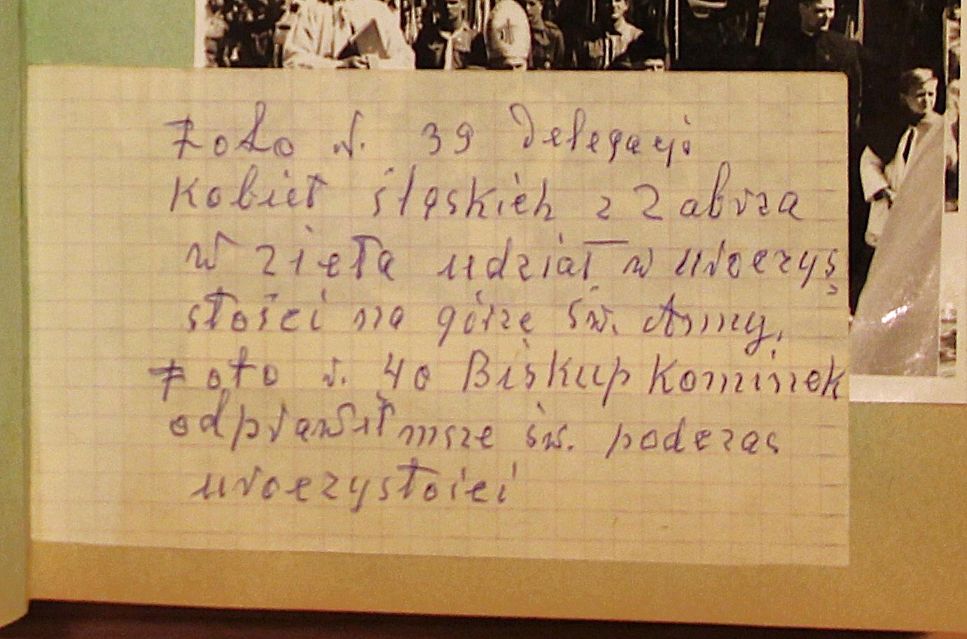 Foto N. 39 Delegacji
Kobiet śląskich z Zabrza
w zieła udział w uroczys
stości na górze św. Anny,
Foto N. 40 Biskup Kominek
odprawił msze św. podczas
uroczystości